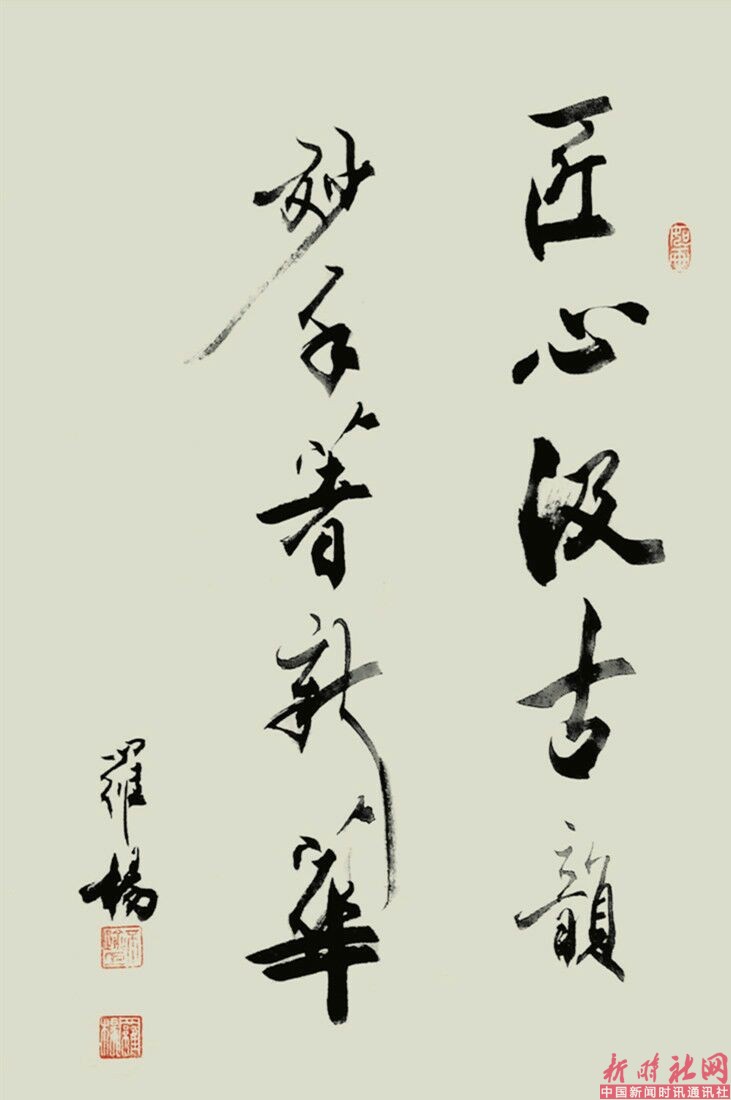 匠心汲古韻
妙手著新華
羅楊
新时社网
中国新闻时讯通讯社